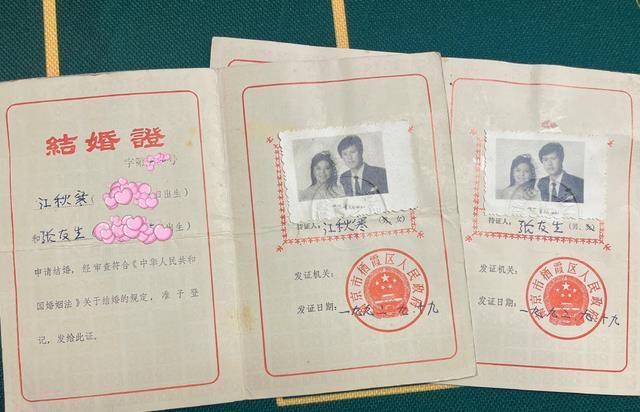 結婚證
字第 号
江秋寒( 日出生)
和张友生 出生)
申请结婚，经审查符合《中华人民共和
国婚姻法》关于结婚的规定，准予登
记，发给此证。
持证人：江秋寒(男、女)
发证机关：
发证日期：一九九二.九.十九
京市栖霞区人民政府
持证人：张友生(男、女)
发证机关：
发证日期：一九九二.九.十九
京市栖霞区人民政府